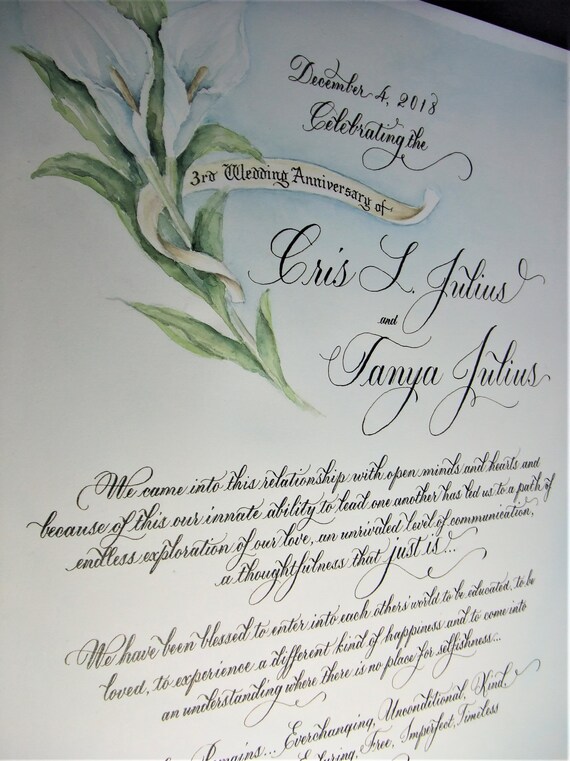 December 4, 2018
Celebrating the
3rd Wedding Anniversary of
Cris L. Julius
and
Tanya Julius
We came into this relationship with open minds and hearts and
because of this our innate ability to lead one another has led us to a path of
endless exploration of our love, an unrivaled level of communication,
a thoughtfulness that just is...
We have been blessed to enter into each others' world to be educated, to be
loved, to experience a different kind of happiness and to come into
an understanding where there is no place for selfishness...
Remains... Everchanging, Unconditional, Kind,
Enduring, Free, Imperfect, Timeless